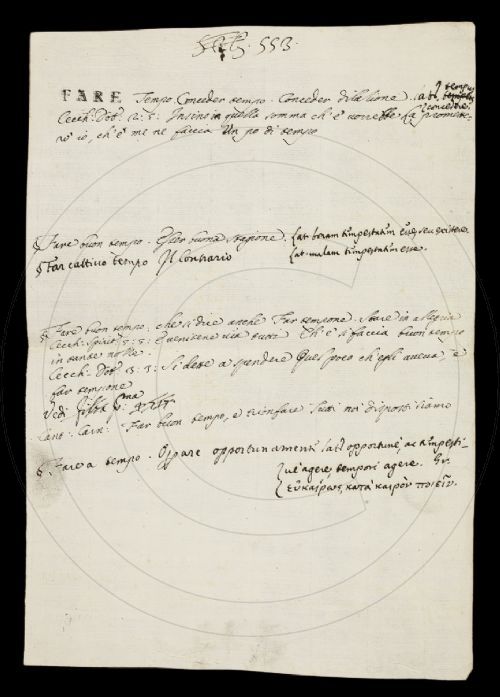 553.
FARE Tempo. Conceder tempo. Conceder dilazione. Lat. tempus
concedere.
Cecch. Dot. 2. 5. Insino in quella somma ch' è vorrebbe la promette-
rò io, ch' e' me ne facca un po di tempo
§ Fare buon tempo. Esser buona stagione. Lat. bonam tempestatem esse, seu existere.
§ Far cattivo tempo Il contrario Lat. malam tempestatem esse.
§ Fare buon tempo, che si dice anche Far tempone. Stare in allegria
Cecch. Spirit. 5. 5. Quensene via tutti Ch' e' si faccia buon tempo
in tante nozze.
Cecch. Dot. 3. 3. Si dette a spendere quel poco ch' egli aveva, e
far tempone
Vedi
Cant. Carn. Far buon tempo, e trionfare Tutti noi disposti siamo
§ Fare a tempo. Oprare opportunamente Lat. opportune, ac tempesti-
ve agere, tempori agere. Gr.
εὐκαίρως, κατὰ καιρὸν ποιεῖν.